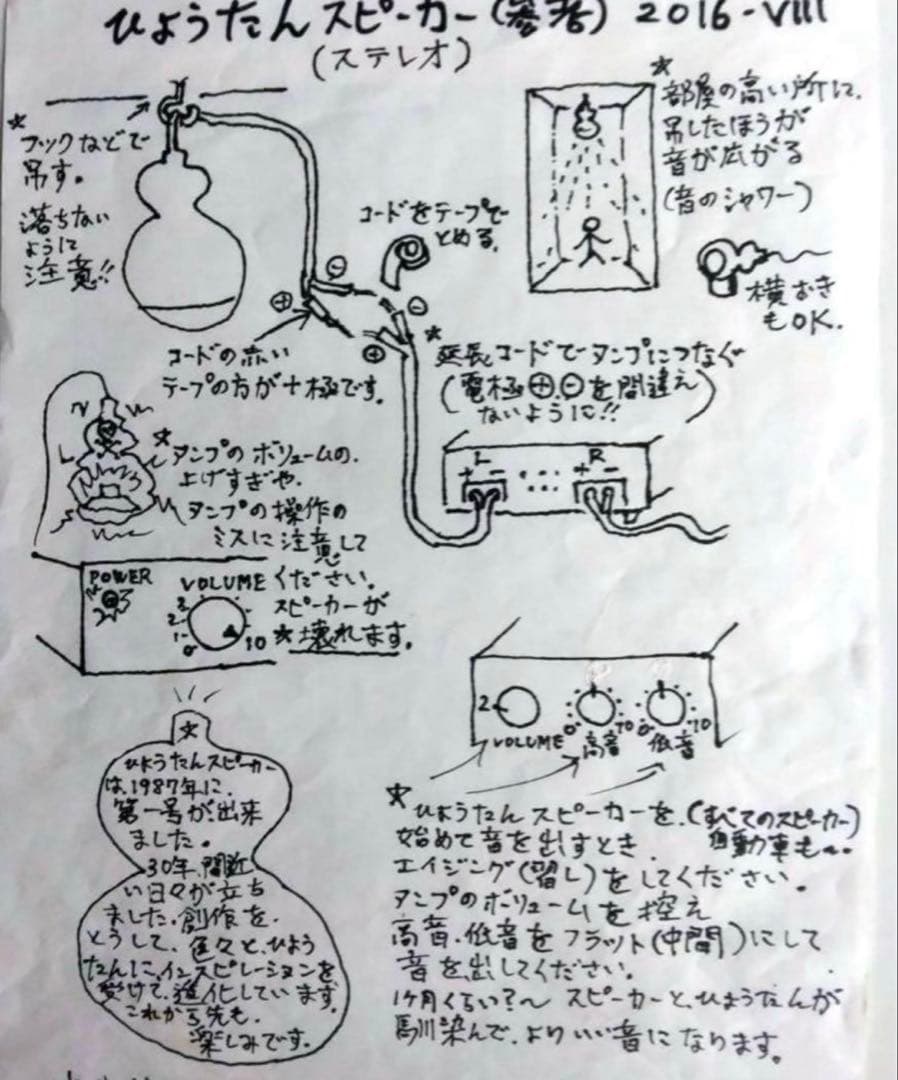 ひょうたんスピーカー(参考) 2016-VIII
(ステレオ)
★
フックなどで
吊す。
落ちない
ように
注意!!
★
部屋の高い所に、
吊したほうが
音が広がる
(音のシャワー)
横むき
もOK.
コードをテープで
とめる。
⊖
⊕
⊖
⊕
コードの赤い
テープの方が十極です。
★
延長コードでアンプにつなぐ
(電極⊕.⊖を間違え
ないように!!)
L R
+ - ... + -
★
アンプのボリュームの、
上げすぎや、
アンプの操作の
ミスに注意して
ください。
スピーカーが
★壊れます。
POWER
VOLUME
0 1 2 3 10
2
VOLUME
0 高音 10
0 低音 10
★
ひょうたんスピーカー
は、1987年に、
第一号が出来
ました。
30年、間近
い日々が立ち
ました。創作を、
とうして、色々と、ひょう
たんに、インスピレーションを
受けて、進化しています。
これから先も、
楽しみです。
★
ひょうたんスピーカーを、(すべてのスピーカー)
始めて音を出すとき、 自動車も〜
エイジング(習し)をしてください。
アンプのボリュームを控え
高音.低音をフラット(中間)にして
音を出してください。
1ヶ月くらい?〜スピーカーと、ひょうたんが
馴染んで、よりいい音になります。